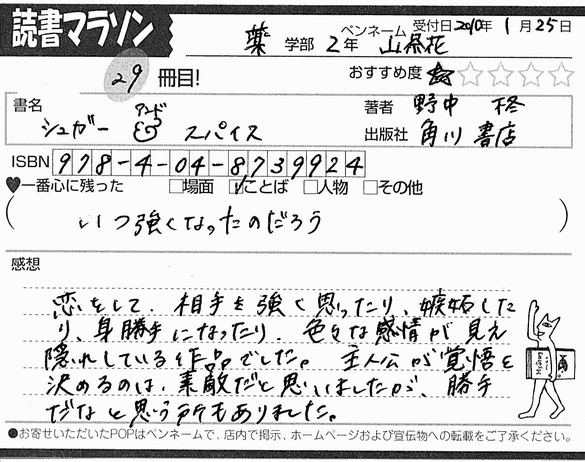 読書マラソン
ペンネーム 受付日2010年 1月25日
薬 学部 2年 山茶花
29 冊目!
おすすめ度 ★☆☆☆☆
書名 アンド
シュガー & スパイス
著者 野中 柊
出版社 角川書店
ISBN 978-4-04-8739924
♥一番心に残った □場面 ☑ことば □人物 □その他
( いつ強くなったのだろう )
感想
恋をして、相手を強く思ったり、嫉妬した
り、身勝手になったり、色々な感情が見え
隠れしている作品でした。主人公が覚悟を
決めるのは、素敵だと思いましたが、勝手
だなと思う所もありました。
●お寄せいただいたPOPはペンネームで、店内で掲示、ホームページおよび宣伝物への転載をご了承ください。